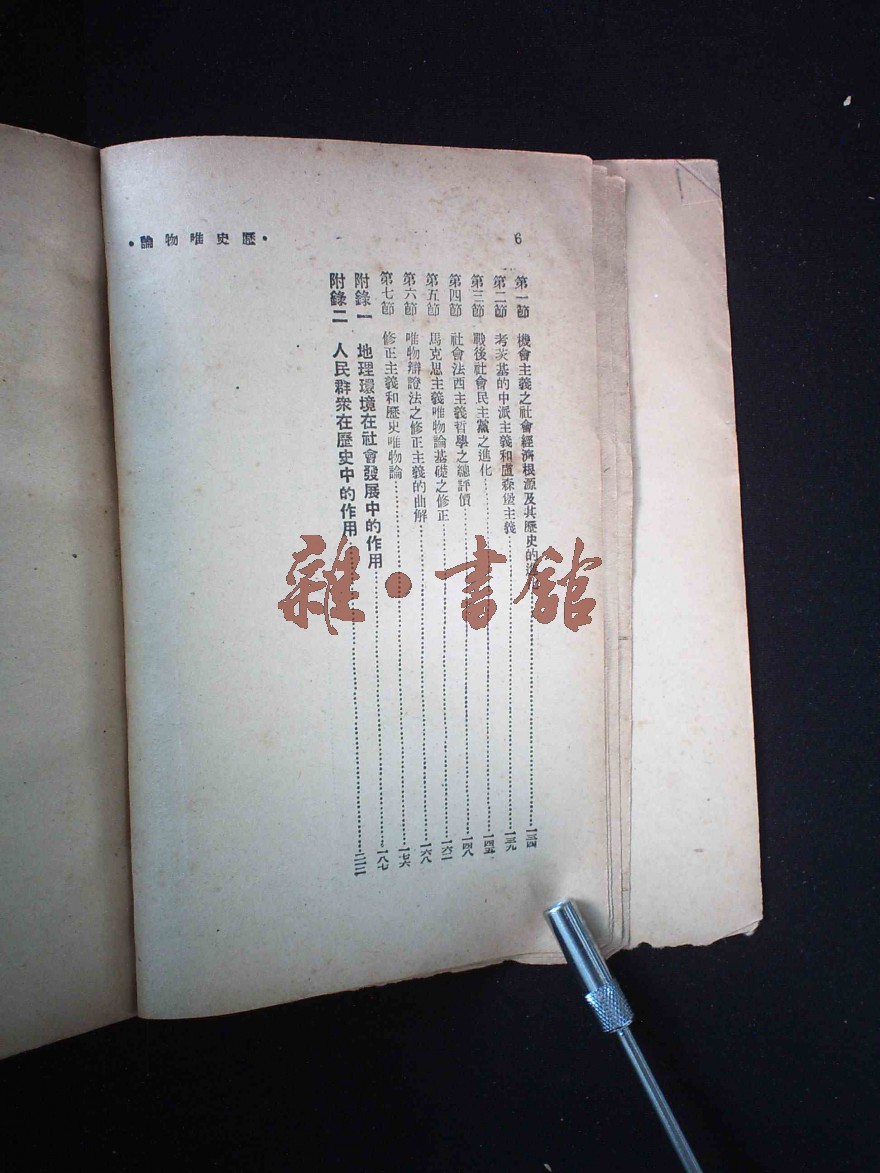 6
·歷史唯物論·
第一節 機會主義之社會經濟根源及其歷史的 一三四
第二節 考茨基的中派主義和盧森堡主義 一三九
第三節 戰後社會民主黨之進化 一四五
第四節 社會法西主義哲學之總評價 一四八
第五節 馬克思主義唯物論基礎之修正
第六節 唯物辯證法之修正主義的曲解 一六八
第七節 修正主義和歷史唯物論 一七六
附錄一 地理環境在社會發展中的作用 一八七
附錄二 人民群衆在歷史中的作用
雜·書館